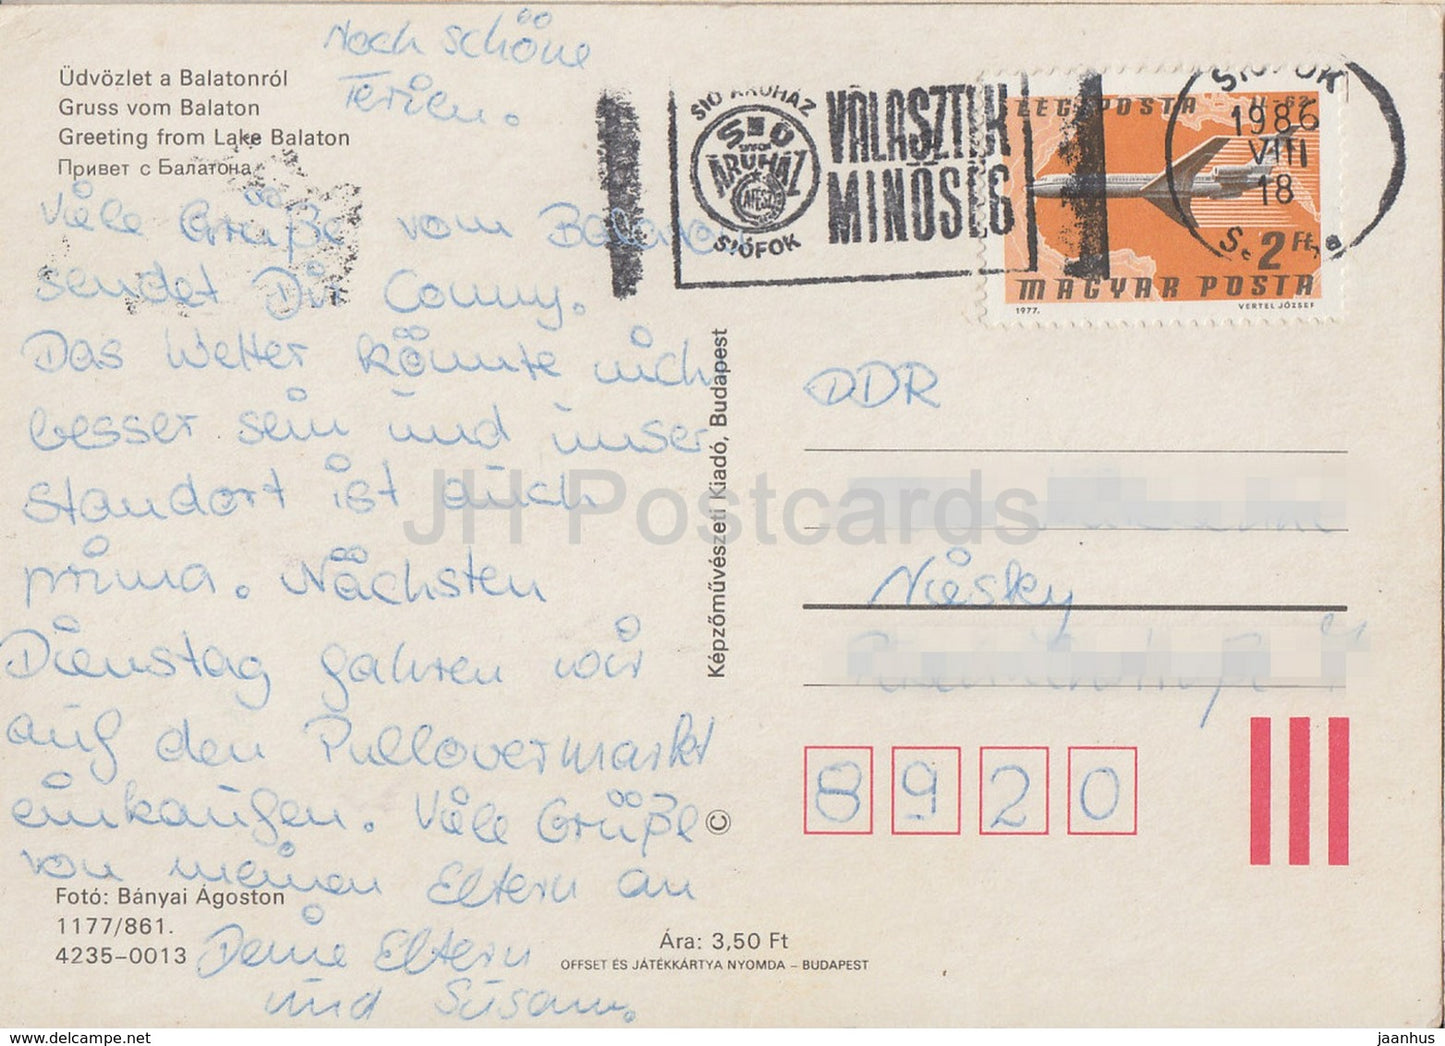 Noch schöne
Ferien.
Üdvözlet a Balatonról
Gruss vom Balaton
Greeting from Lake Balaton
Привет с Балатона
Viele Grüße vom Balaton
sendet Dir Conny.
Das Wetter könnte nich
besser sein und unser
Standort ist auch
prima. Nächsten
Dienstag fahren wir
auf den Pullovermarkt
einkaufen. Viele Grüße
von meinen Eltern an
Deine Eltern
und Susann.
Fotó: Bányai Ágoston
1177/861.
4235-0013
Ára: 3,50 Ft
OFFSET ÉS JÁTÉKKÁRTYA NYOMDA – BUDAPEST
Képzőművészeti Kiadó, Budapest
©
SIÓ ÁRUHÁZ
SIÓ
ÁRUHÁZ
ÁFÉSZ
SIÓFOK
VÁLASZTÉK
MINŐSÉG
LÉGIPOSTA IL-62
2 Ft
MAGYAR POSTA
1977. VERTEL JÓZSEF
SIÓFOK
1986
VIII
18
DDR
Niesky
8920
JH Postcards
hippostcard.com
jaanhus